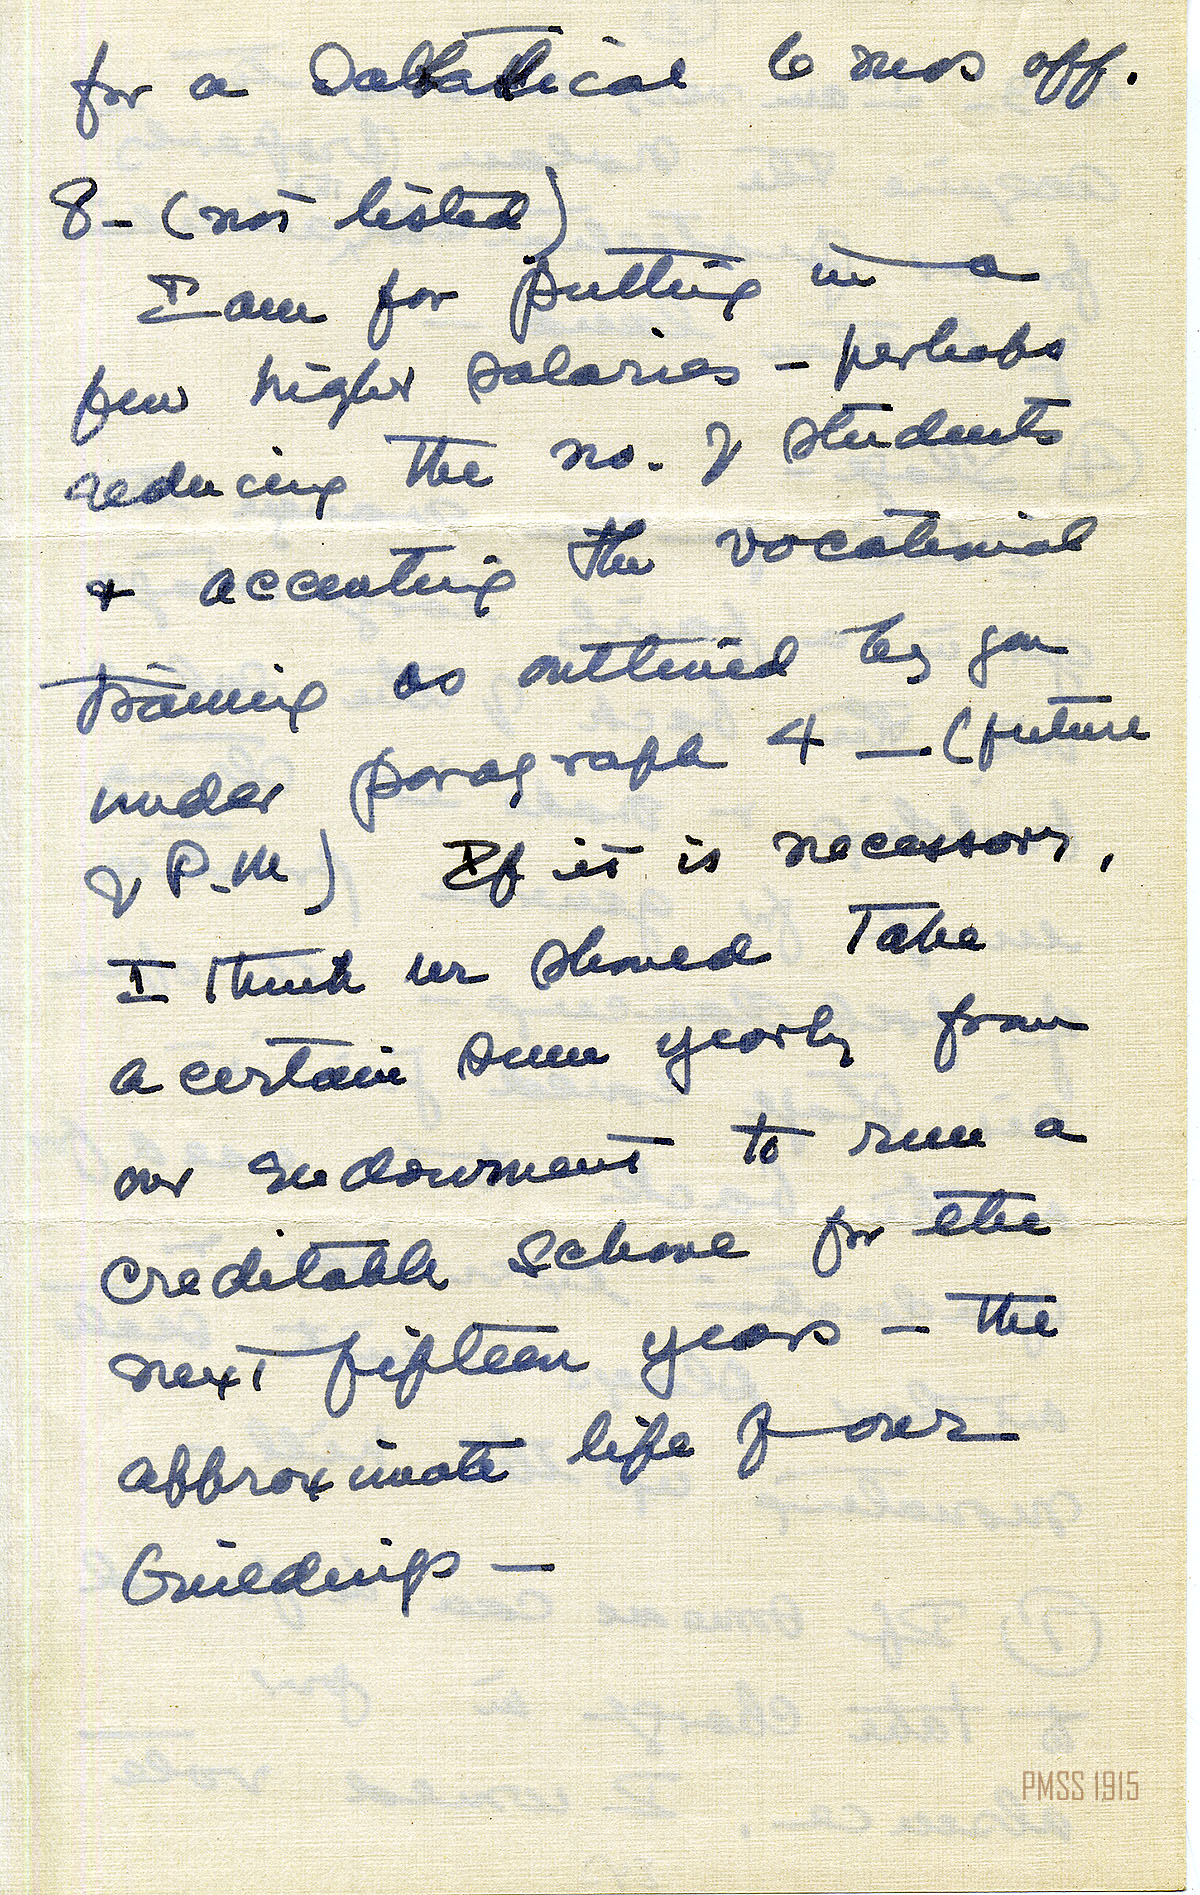 for a Sabbatical 6 mos off.
8- (not listed)
I am for putting in a
few higher salaries - perhaps
reducing the no. of students
& accenting the vocational
training as outlined by you
under paragraph 4 - (future
of P.M) If it is necessary,
I think we should take
a certain sum yearly from
our endowment to run a
creditable school for the
next fifteen years - the
approximate life of our
buildings -
PMSS 1915